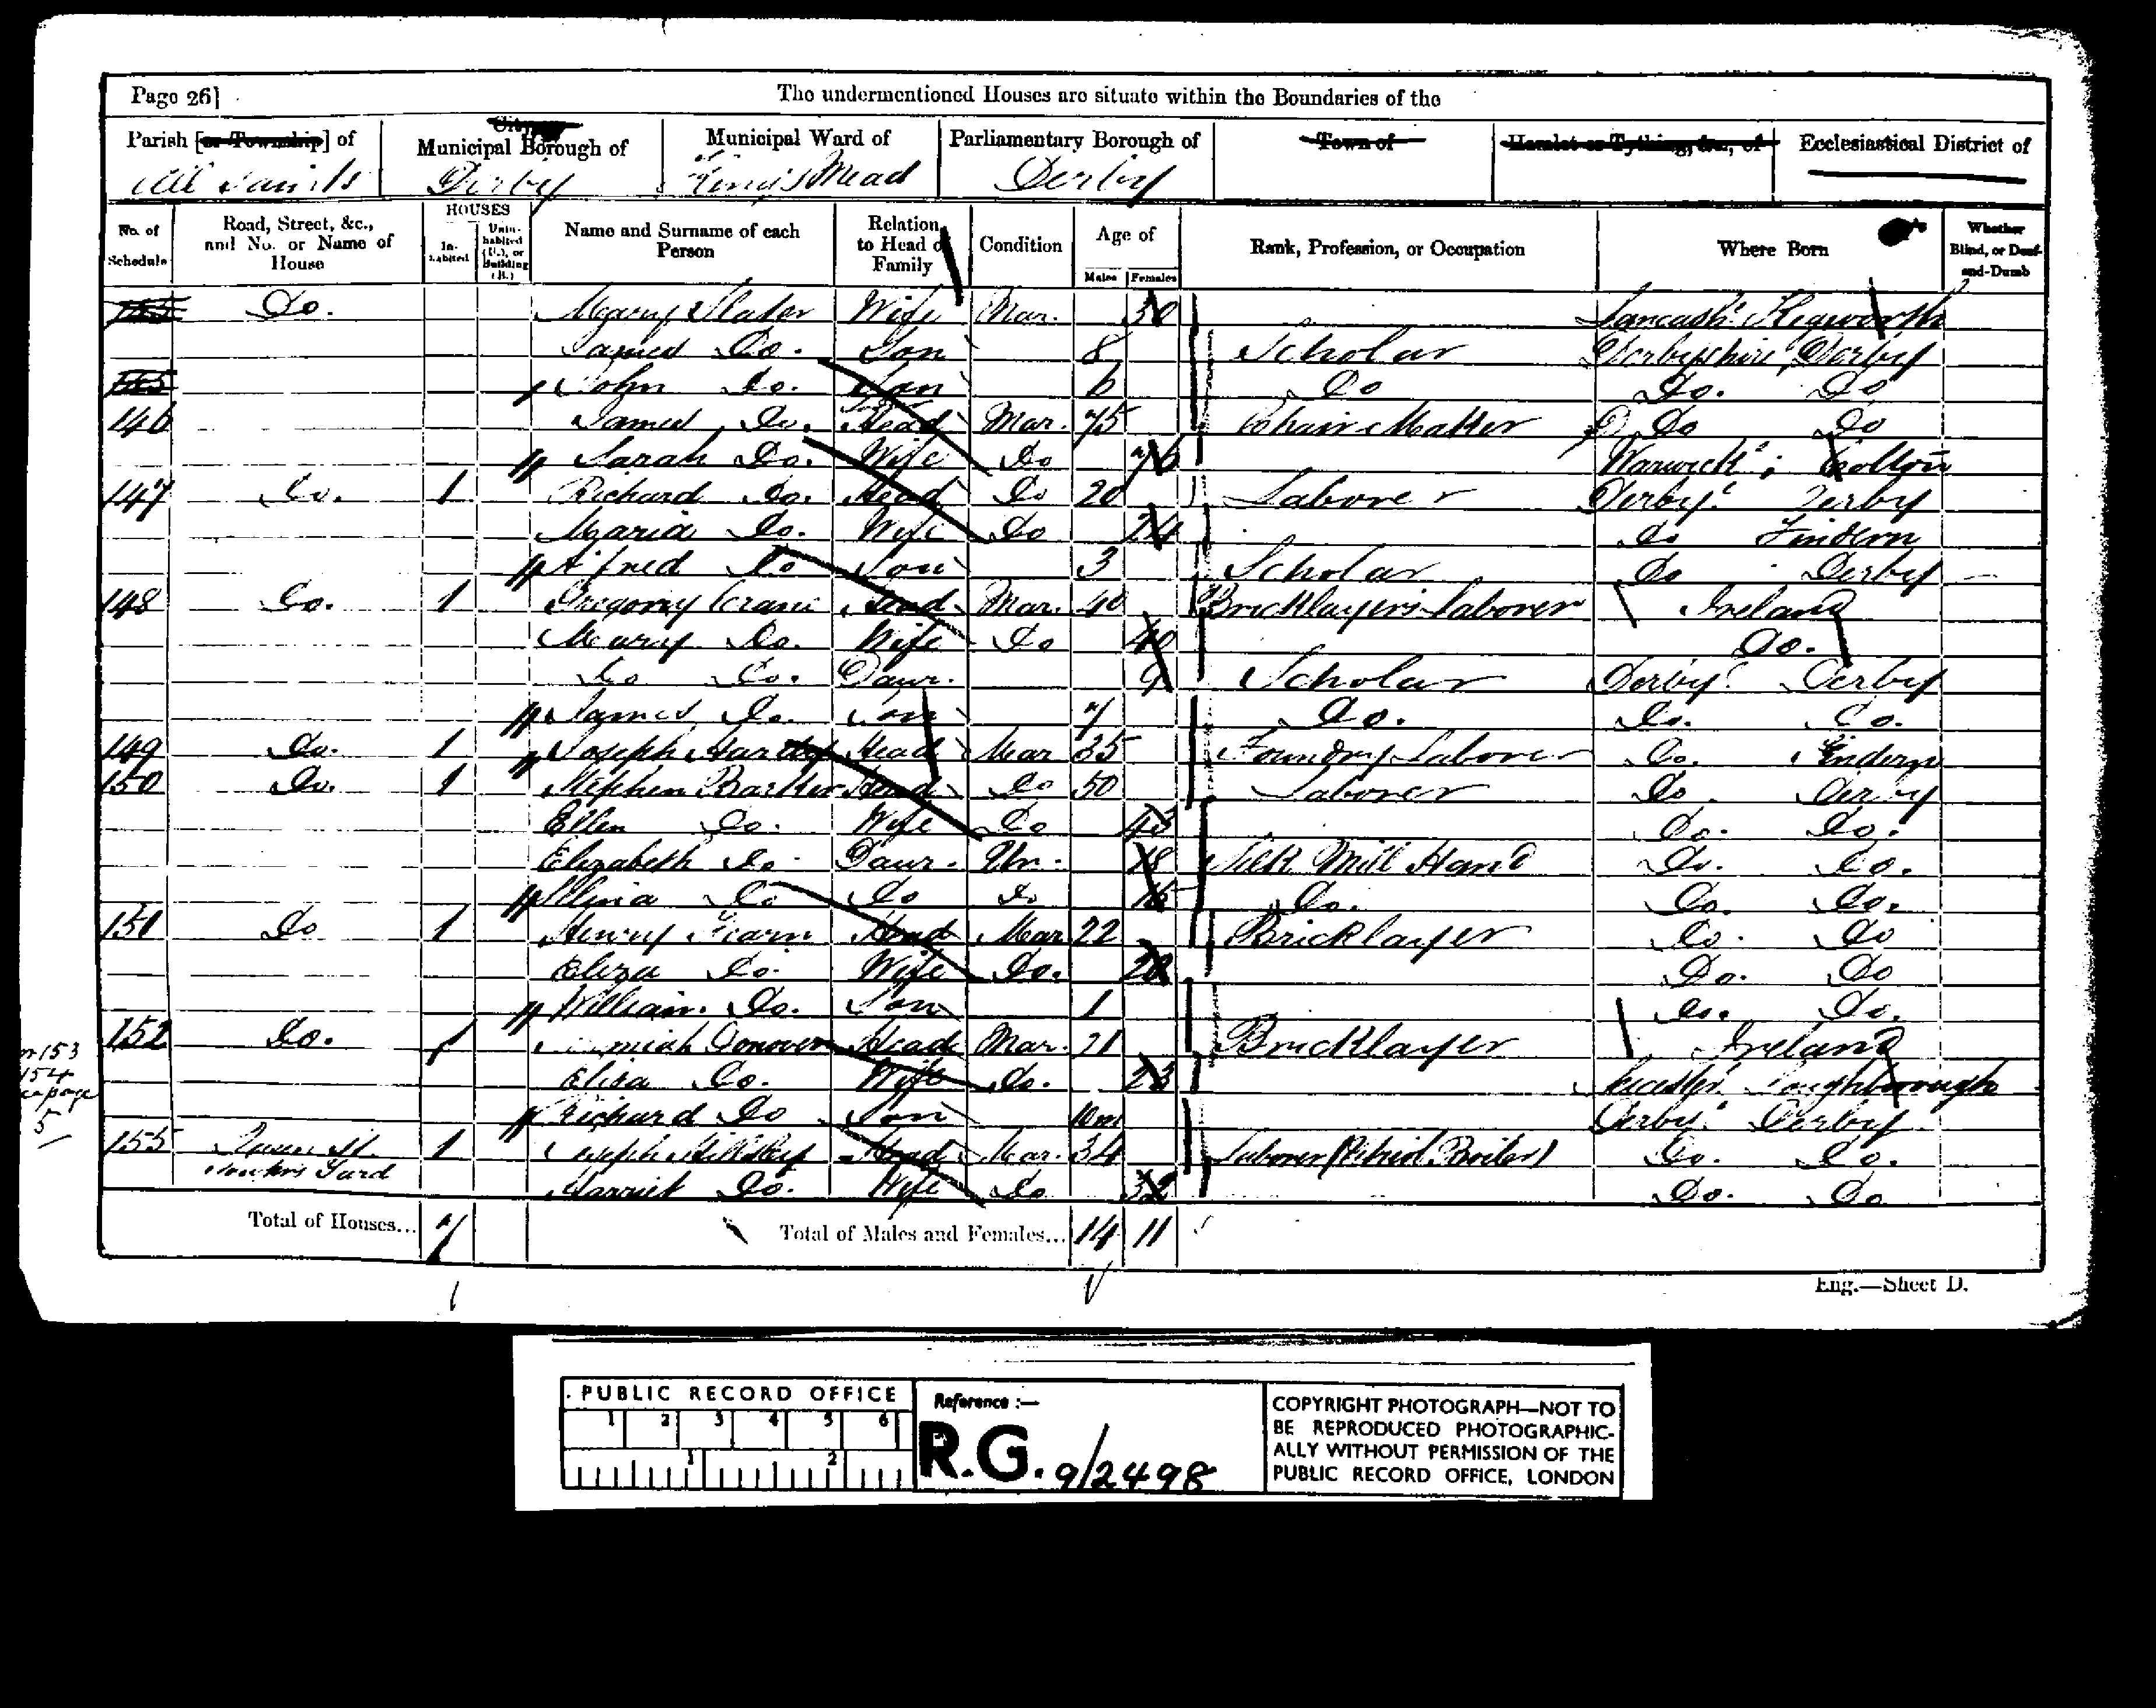 Page 26]
The undermentioned Houses are situate within the Boundaries of the
Parish [or Township] of
City or Municipal Borough of
Municipal Ward of
Parliamentary Borough of
Town of
Hamlet or Tything, &c., of
Ecclesiastical District of
All Saints Derby King's Mead Derby
No. of Schedule
Road, Street, &c., and No. or Name of House
HOUSES
In-habited
Unin-habited (U.), or Building (B.)
Name and Surname of each Person
Relation to Head of Family
Condition
Age of
Males Females
Rank, Profession, or Occupation
Where Born
Whether Blind, or Deaf-and-Dumb
Do. Mary Slater Wife Mar. 30 Lancash. Kegworth
James Do. Son 8 Scholar Derbyshire Derby
John Do. Son 6 Do Do. Do
146 James Do. Head Mar. 75 Chair Maker Do Do
Sarah Do. Wife Do 76 Warwick;
147 Do. 1 Richard Do. Head Do 20 Laborer Derby. Derby
Maria Do. Wife Do 24 Do Findern
Alfred Do Son 3 Scholar Do Derby
148 Do. 1 Gregory Crane Head Mar. 40 Bricklayers Laborer Ireland
Mary Do. Wife Do 40 Do.
Do Do. Daur. 9 Scholar Derby. Derby
James Do. Son 7 Do. Do. Do.
149 Do. 1 Joseph Head Mar 35 Foundry Laborer Do.
150 Do. 1 Stephen Barker Head Do 50 Laborer Do Derby
Ellen Do. Wife Do Do. Do.
Elizabeth Do. Daur. Un. 18 Silk Mill Hand Do. Do.
Selina Do Do Do 16 Do. Do. Do.
151 Do 1 Henry Fearn Head Mar 22 Bricklayer Do. Do
Eliza Do. Wife Do. 20 Do. Do
William Do. Son 1 Do. Do.
152 Do. 1 Donover Head Mar. 21 Bricklayer Ireland
Elisa Do. Wife Do. 23 Leicester. Loughborough
Richard Do Son 10m Derby. Derby
155 Queen St. 1 Joseph Head Mar. 34 Laborer Do. Do.
Yard Harriet Do. Wife Do 32 Do. Do
153
154
page
5
Total of Houses... 7
Total of Males and Females... 14 11
Eng.—Sheet D.
PUBLIC RECORD OFFICE
1 2 3 4 5 6
1 2
Reference :—
R.G. 9/2498
COPYRIGHT PHOTOGRAPH—NOT TO
BE REPRODUCED PHOTOGRAPHIC-
ALLY WITHOUT PERMISSION OF THE
PUBLIC RECORD OFFICE, LONDON